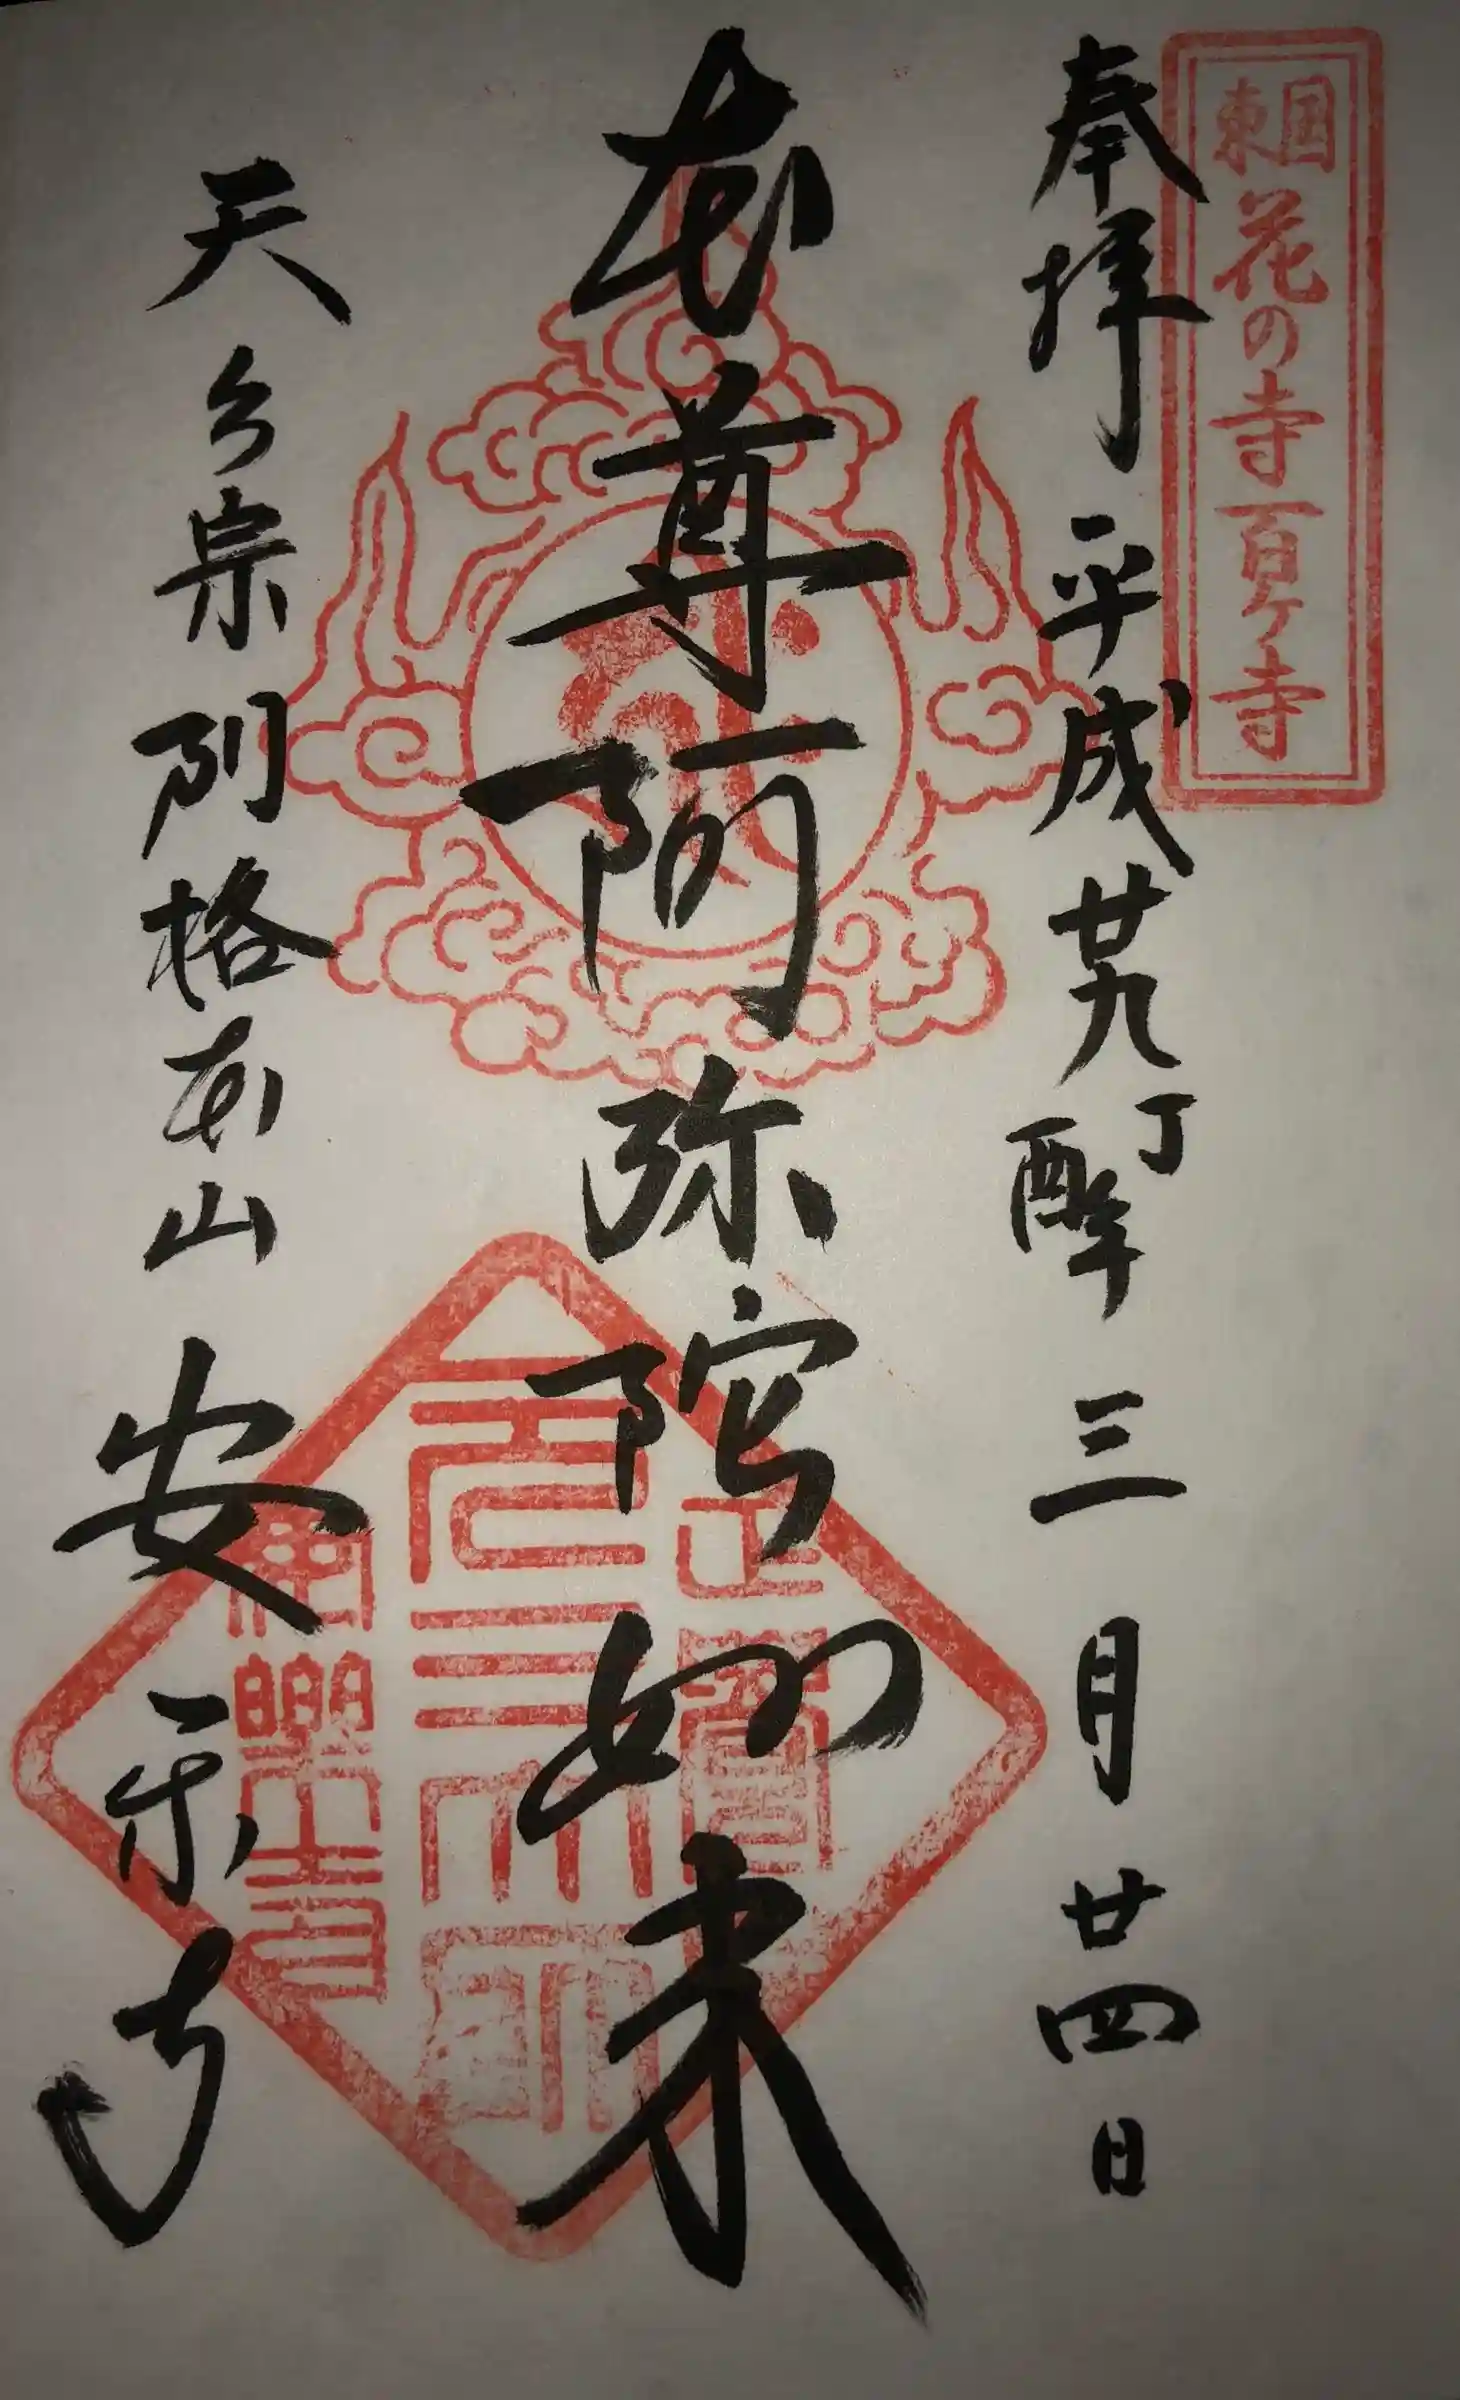 東国花の寺百ヶ寺
奉拝 平成廿九丁酉年 三月廿四日
本尊阿弥陀如来
天台宗別格本山 安楽寺